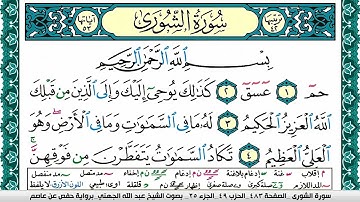 سُورَةُ الشُّورَىٰ
بِسْمِ اللَّهِ الرَّحْمَٰنِ الرَّحِيمِ
حمٓ ١ عٓسٓقٓ ٢ كَذَٰلِكَ يُوحِىٓ إِلَيْكَ وَإِلَى ٱلَّذِينَ مِن قَبْلِكَ
ٱللَّهُ ٱلْعَزِيزُ ٱلْحَكِيمُ ٣ لَهُۥ مَا فِى ٱلسَّمَٰوَٰتِ وَمَا فِى ٱلْأَرْضِ وَهُوَ
ٱلْعَلِىُّ ٱلْعَظِيمُ ٤ تَكَادُ ٱلسَّمَٰوَٰتُ يَتَفَطَّرْنَ مِن فَوْقِهِنَّ
سورة الشورى , الصفحة ٤٨٣ , الحزب ٤٩ , الجزء ٢٥ بصوت الشيخ عبد الله الجهني , برواية حفص عن عاصم